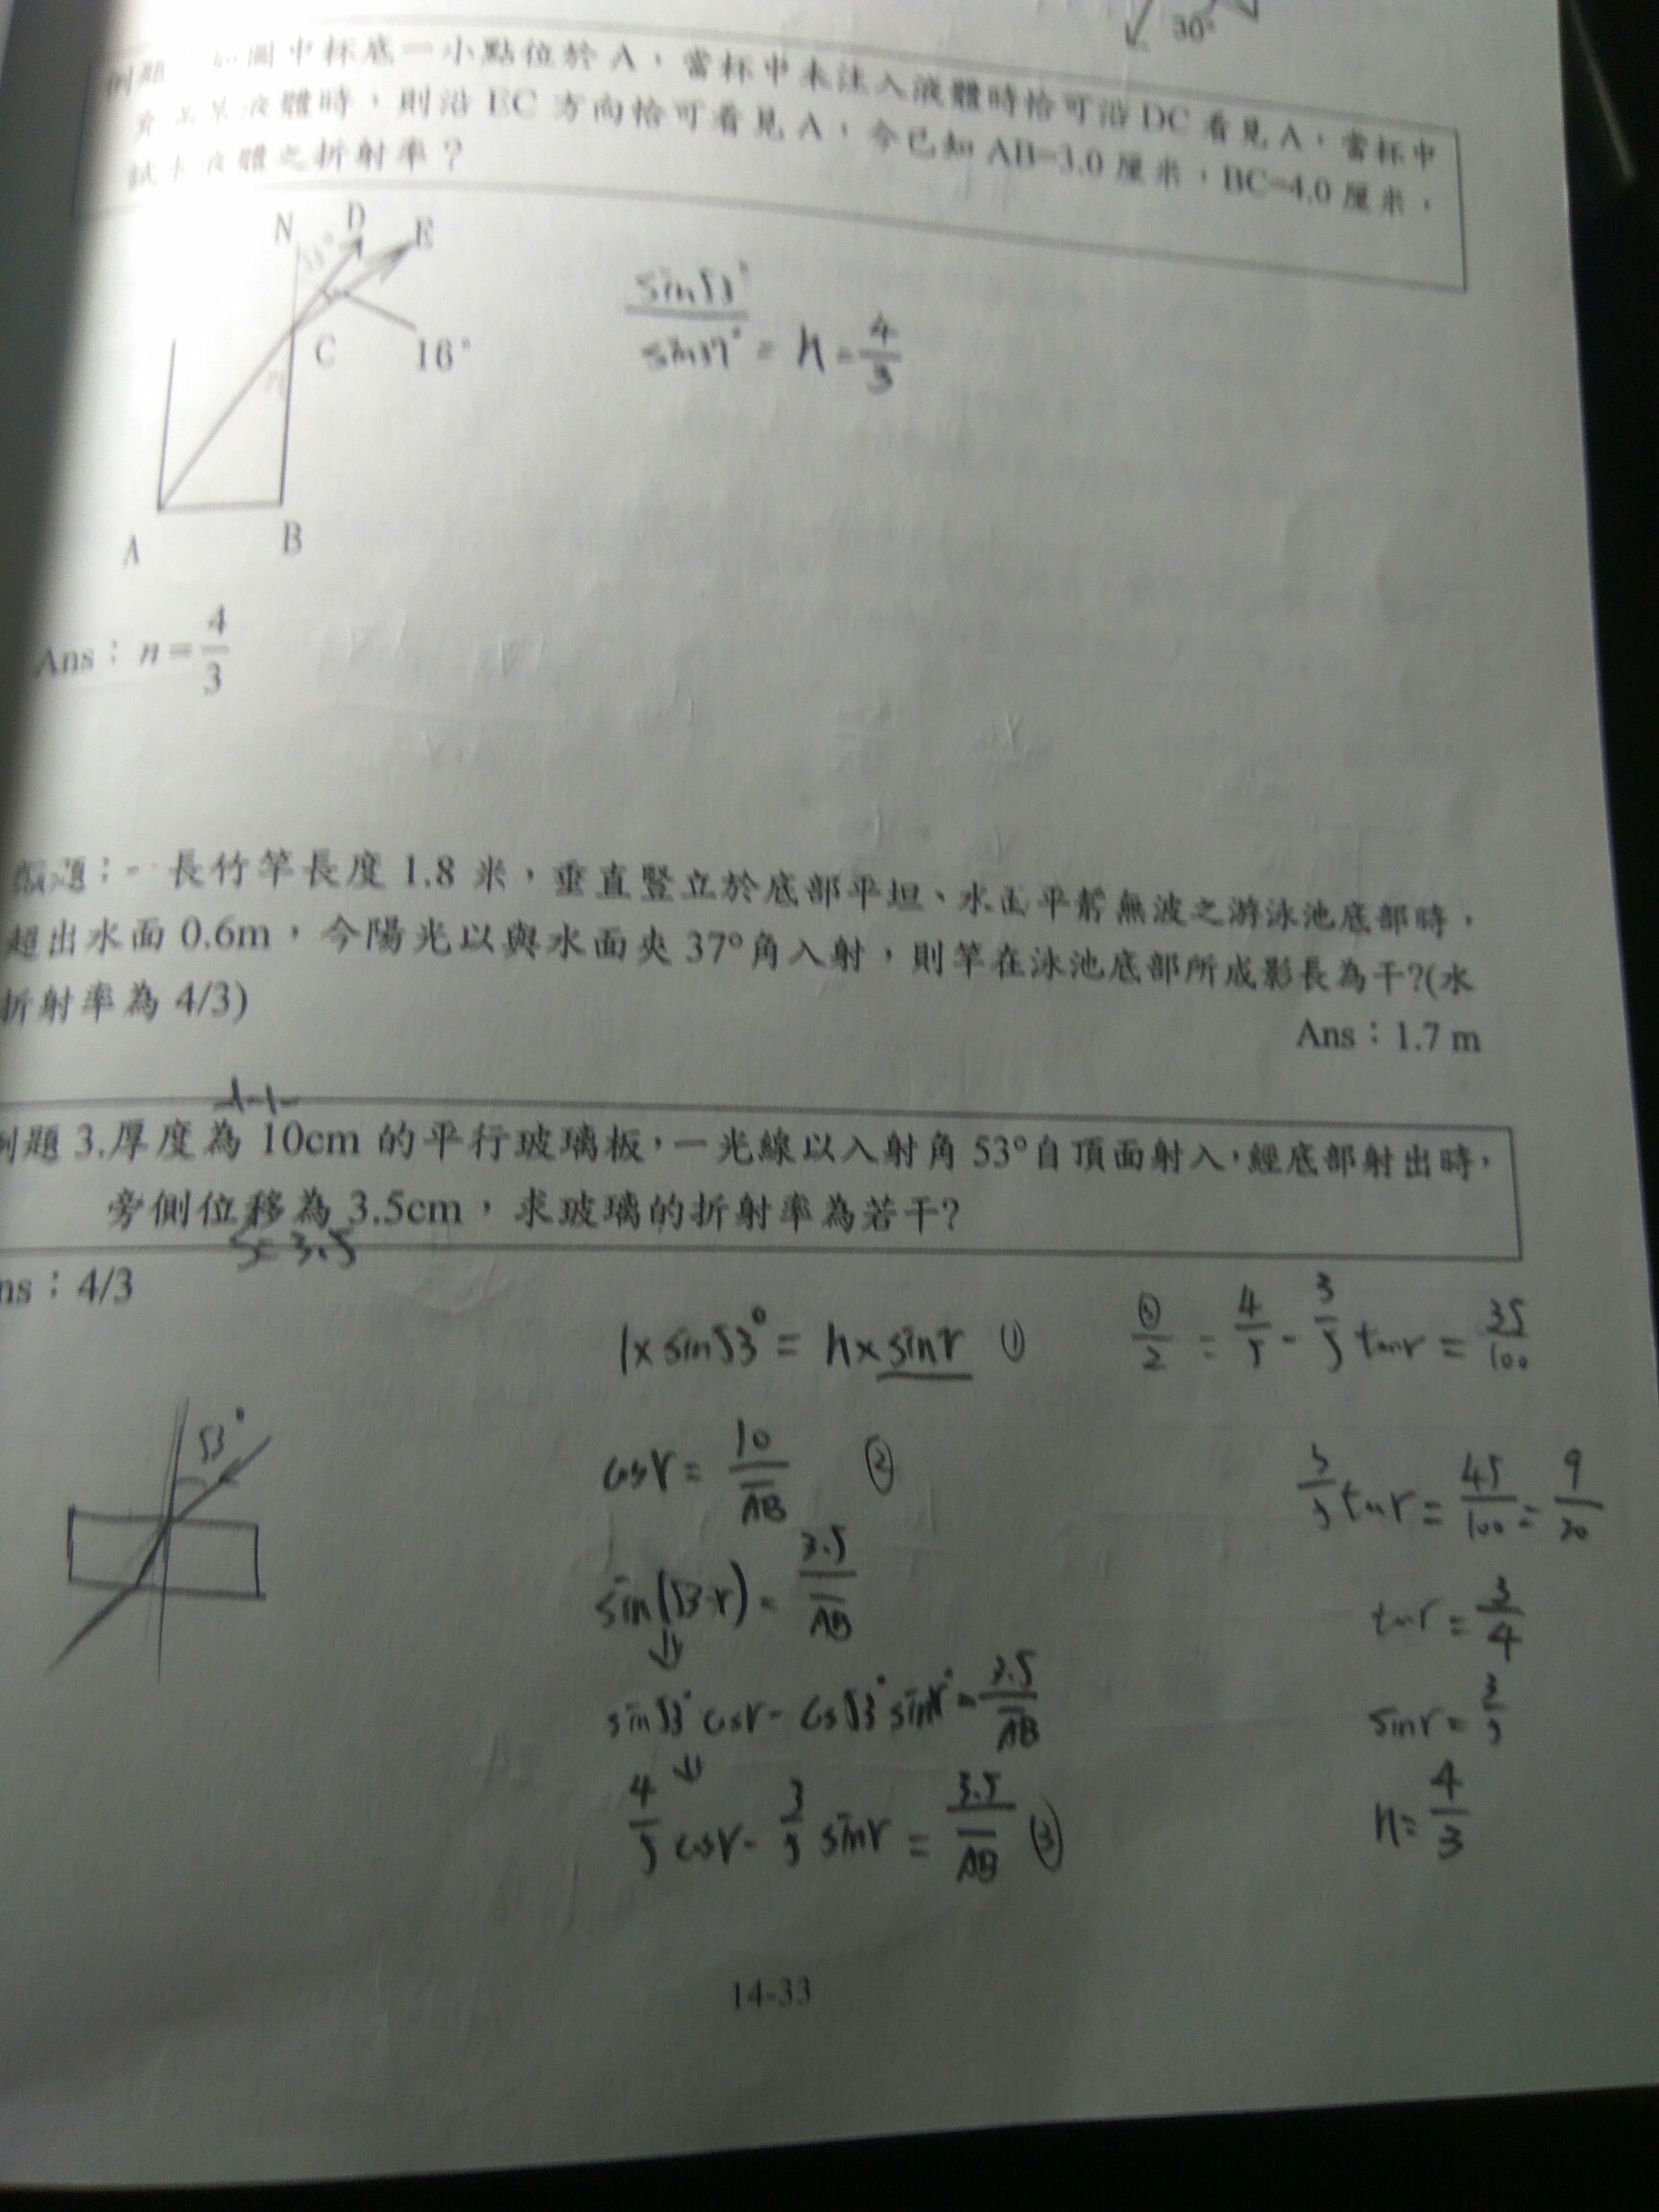 30°
例題 如圖中杯底一小點位於 A，當杯中未注入液體時恰可沿 DC 看見 A，當杯中
液體時，則沿 EC 方向恰可看見 A，今已知 AB=3.0 厘米，BC=4.0 厘米，
試求液體之折射率？
N D E
C 16°
A B
sin53°
/ sin37° = n = 4/3
Ans：n = 4/3
長竹竿長度 1.8 米，垂直豎立於底部平坦、水面平靜無波之游泳池底部時，
超出水面 0.6m，今陽光以與水面夾 37°角入射，則竿在泳池底部所成影長為干?(水
折射率為 4/3)
Ans：1.7 m
例題 3.厚度為 10cm 的平行玻璃板，一光線以入射角 53°自頂面射入，經底部射出時，
旁側位移為 3.5cm，求玻璃的折射率為若干?
S=3.5
ns：4/3
53°
1×sin53° = n×sinr ①
cosr = 10/AB ②
sin(53-r) = 3.5/AB
⇓
sin53° cosr - cos53° sinr° = 3.5/AB
⇓
4/5 cosr - 3/5 sinr = 3.5/AB ③
③/2 = 4/5 - 3/5 tanr = 35/100
3/5 tanr = 45/100 = 9/20
tanr = 3/4
sinr = 3/5
n = 4/3
14-33